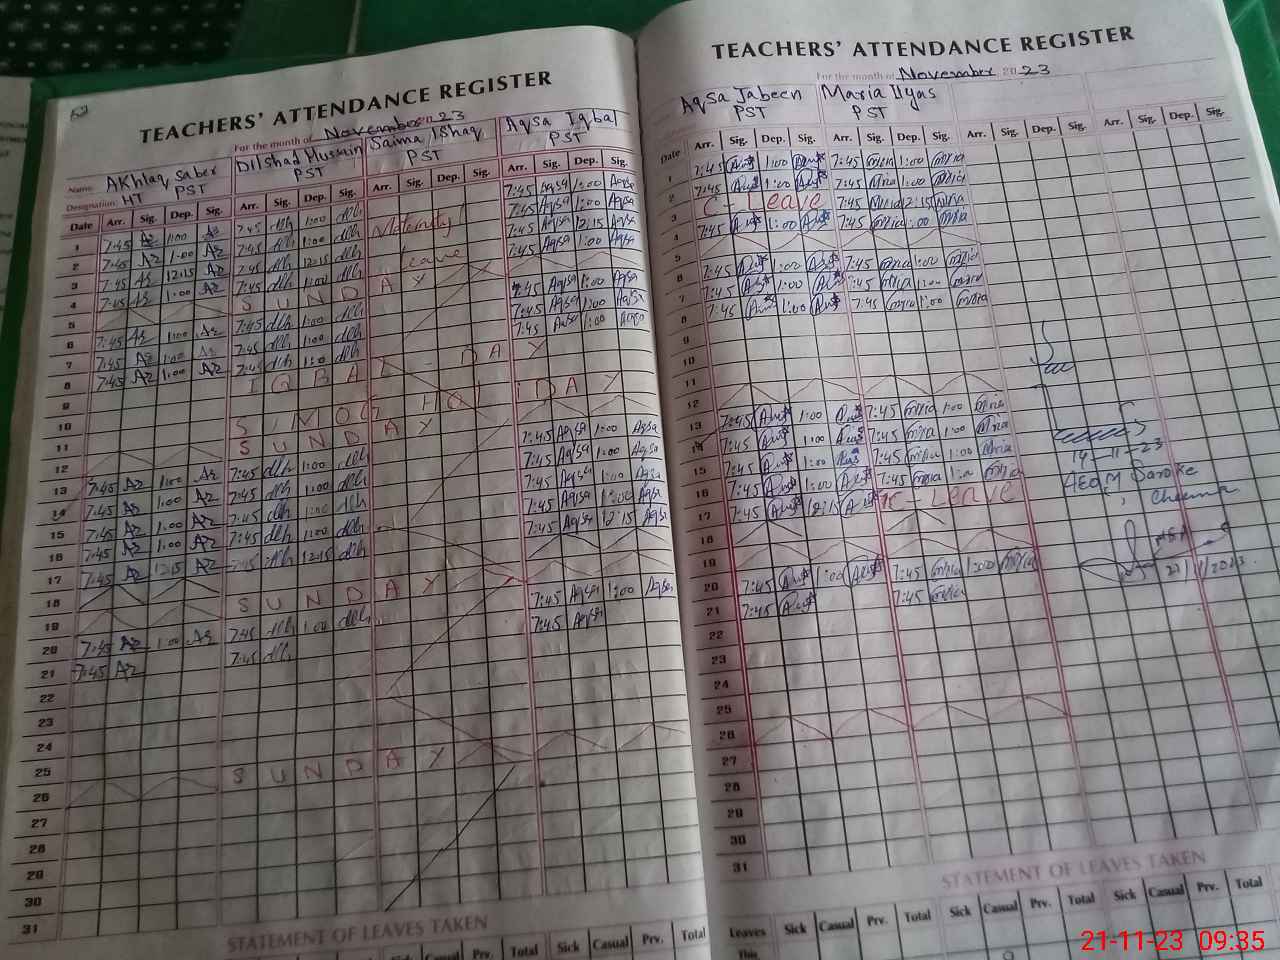 TEACHERS' ATTENDANCE REGISTER
For the month of November 2023
Name: Akhlaq Saber Dilshad Hussain Saima Ishaq Aqsa Iqbal
Designation: HT PST PST PST PST
Date Arr. Sig. Dep. Sig. Arr. Sig. Dep. Sig. Arr. Sig. Dep. Sig. Arr. Sig. Dep. Sig.
1 7:45 Az 1:00 Az 7:45 dlh 1:00 dlh Maternity 7:45 Aqsa 1:00 Aqsa
2 7:45 Az 1:00 Az 7:45 dlh 1:00 dlh Leave 7:45 Aqsa 1:00 Aqsa
3 7:45 Az 12:15 Az 7:45 dlh 12:15 dlh 7:45 Aqsa 12:15 Aqsa
4 7:45 Az 1:00 Az 7:45 dlh 1:00 dlh 7:45 Aqsa 1:00 Aqsa
5 SUNDAY
6 7:45 Az 1:00 Az 7:45 dlh 1:00 dlh 7:45 Aqsa 1:00 Aqsa
7 7:45 Az 1:00 Az 7:45 dlh 1:00 dlh 7:45 Aqsa 1:00 Aqsa
8 7:45 Az 1:00 Az 7:45 dlh 1:00 dlh 7:45 Aqsa 1:00 Aqsa
9 IQBAL DAY
10 SMOG HOLIDAY
11
12 SUNDAY
13 7:45 Az 1:00 Az 7:45 dlh 1:00 dlh 7:45 Aqsa 1:00 Aqsa
14 7:45 Az 1:00 Az 7:45 dlh 1:00 dlh 7:45 Aqsa 1:00 Aqsa
15 7:45 Az 1:00 Az 7:45 dlh 1:00 dlh 7:45 Aqsa 1:00 Aqsa
16 7:45 Az 1:00 Az 7:45 dlh 1:00 dlh 7:45 Aqsa 1:00 Aqsa
17 7:45 Az 12:15 Az 7:45 dlh 12:15 dlh 7:45 Aqsa 12:15 Aqsa
18
19 SUNDAY
20 7:45 Az 1:00 Az 7:45 dlh 1:00 dlh 7:45 Aqsa 1:00 Aqsa
21 7:45 Az 7:45 dlh 7:45 Aqsa
22
23
24
25
26 SUNDAY
27
28
29
30
31
STATEMENT OF LEAVES TAKEN
Total Sick Casual Prv. Total
TEACHERS' ATTENDANCE REGISTER
For the month of November 2023
Aqsa Jabeen Maria Ilyas
PST PST
Date Arr. Sig. Dep. Sig. Arr. Sig. Dep. Sig. Arr. Sig. Dep. Sig. Arr. Sig. Dep. Sig.
1 7:45 1:00 7:45 Mria 1:00 Mria
2 7:45 1:00 7:45 Mria 1:00 Mria
3 C - Leave 7:45 Mria 12:15 Mria
4 7:45 1:00 7:45 Mria 1:00 Mria
5
6 7:45 1:00 7:45 Mria 1:00 Mria
7 7:45 1:00 7:45 Mria 1:00 Mria
8 7:45 1:00 7:45 Mria 1:00 Mria
9
10
11
12
13 7:45 1:00 7:45 Mria 1:00 Mria
14 7:45 1:00 7:45 Mria 1:00 Mria
15 7:45 1:00 7:45 Mria 1:00 Mria
16 7:45 1:00 7:45 Mria 1:00 Mria
17 7:45 12:15 C - Leave
18
19
20 7:45 1:00 7:45 Mria 1:00 Mria
21 7:45 7:45 Mria
22
23
24
25
26
27
28
29
30
31
14-11-23
AEO M Saroke
Cheema
STATEMENT OF LEAVES TAKEN
Leaves Sick Casual Prv. Total Sick Casual Prv. Total Sick Casual Prv. Total
This
21-11-23 09:35